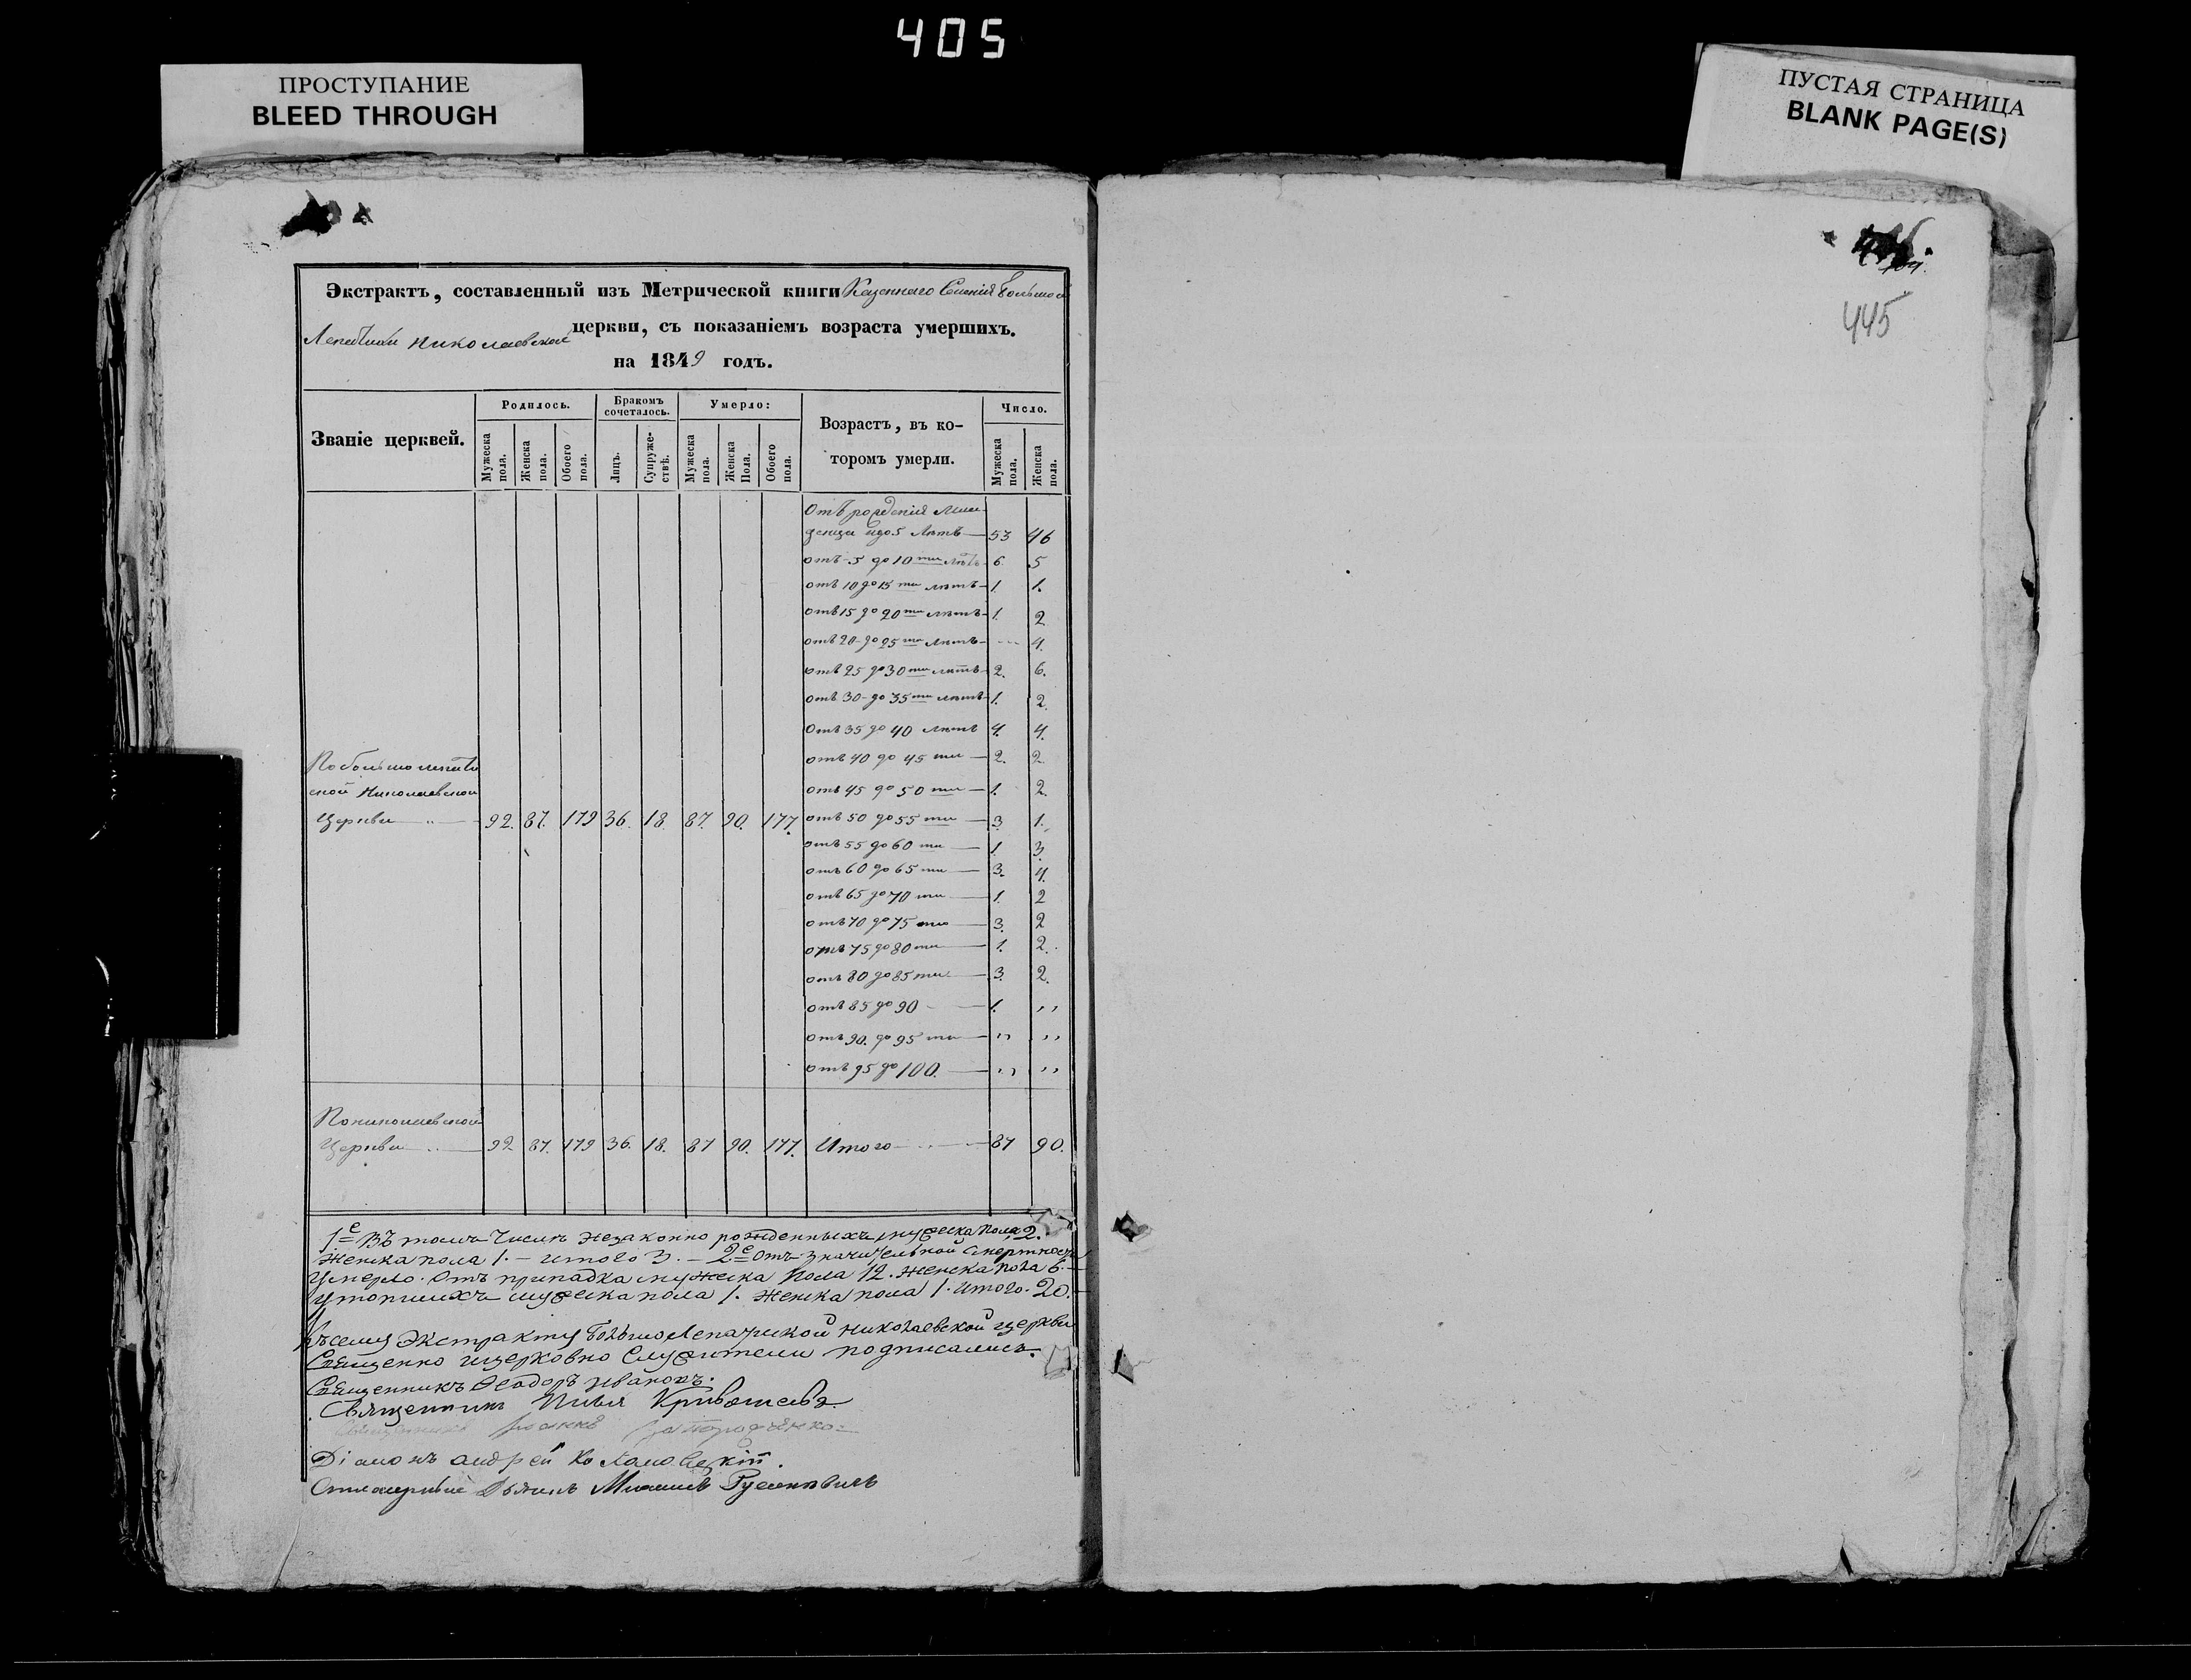 405
ПРОСТУПАНИЕ
BLEED THROUGH
ПУСТАЯ СТРАНИЦА
BLANK PAGE(S)
445
Экстрактъ, составленный изъ Метрической книги Казеннаго Селенія Большой
Лепетихи Николаевской церкви, съ показаніемъ возраста умершихъ.
на 1849 годъ.
Званіе церквей.
Родилось.
Бракомъ сочеталось.
Умерло:
Возрастъ, въ которомъ умерли.
Число.
Мужеска пола.
Женска пола.
Обоего пола.
Лицъ.
Супружествъ.
Мужеска пола.
Женска Пола.
Обоего пола.
Мужеска пола.
Женска пола.
Отъ рожденія Мла-
денца до 5 лѣтъ 53 46
отъ 5 до 10 ти лѣтъ 6 5
отъ 10 до 15 ти лѣтъ 1. 1.
отъ 15 до 20 ти лѣтъ 1. 2
отъ 20 до 25 ти лѣтъ - 4.
отъ 25 до 30 ти лѣтъ 2. 6.
отъ 30 до 35 ти лѣтъ 1. 2.
Отъ 35 до 40 лѣтъ 4. 4.
отъ 40 до 45 ти 2. 2
отъ 45 до 50 ти 1. 2.
По большо лепети
ской Николаевской
Церкви 92. 87. 179 36. 18. 87. 90. 177. отъ 50 до 55 ти 3 1.
отъ 55 до 60 ти 1. 3.
отъ 60 до 65 ти 3. 4.
отъ 65 до 70 ти 1. 2
отъ 70 до 75 ти 3. 2
отъ 75 до 80 ти 1. 2.
отъ 80 до 85 ти 3. 2.
отъ 85 до 90 1. ,,
отъ 90. до 95 ти ,, ,,
отъ 95 до 100. ,, ,,
По николаевской
Церкви 92 87. 179 36. 18. 87 90. 177. Итого 87 90.
1е Въ томъ Числѣ незаконно рожденныхъ, мужеска пола 2.
женска пола 1. - итого 3. - 2е Отъ значительной смертности
Умерло. Отъ припадка мужеска Пола 12. женска пола 6.
Утопшихъ мужеска пола 1. женска пола 1. Итого. 20.
Къ сему Экстракту Большо Лепатиской Николаевской церкви
Священно и церковно Служители подписались.
Священникъ Ѳеодоръ Ивановъ.
Священникъ Илья Кривошеевъ
Діаконъ андрей
Михаилъ